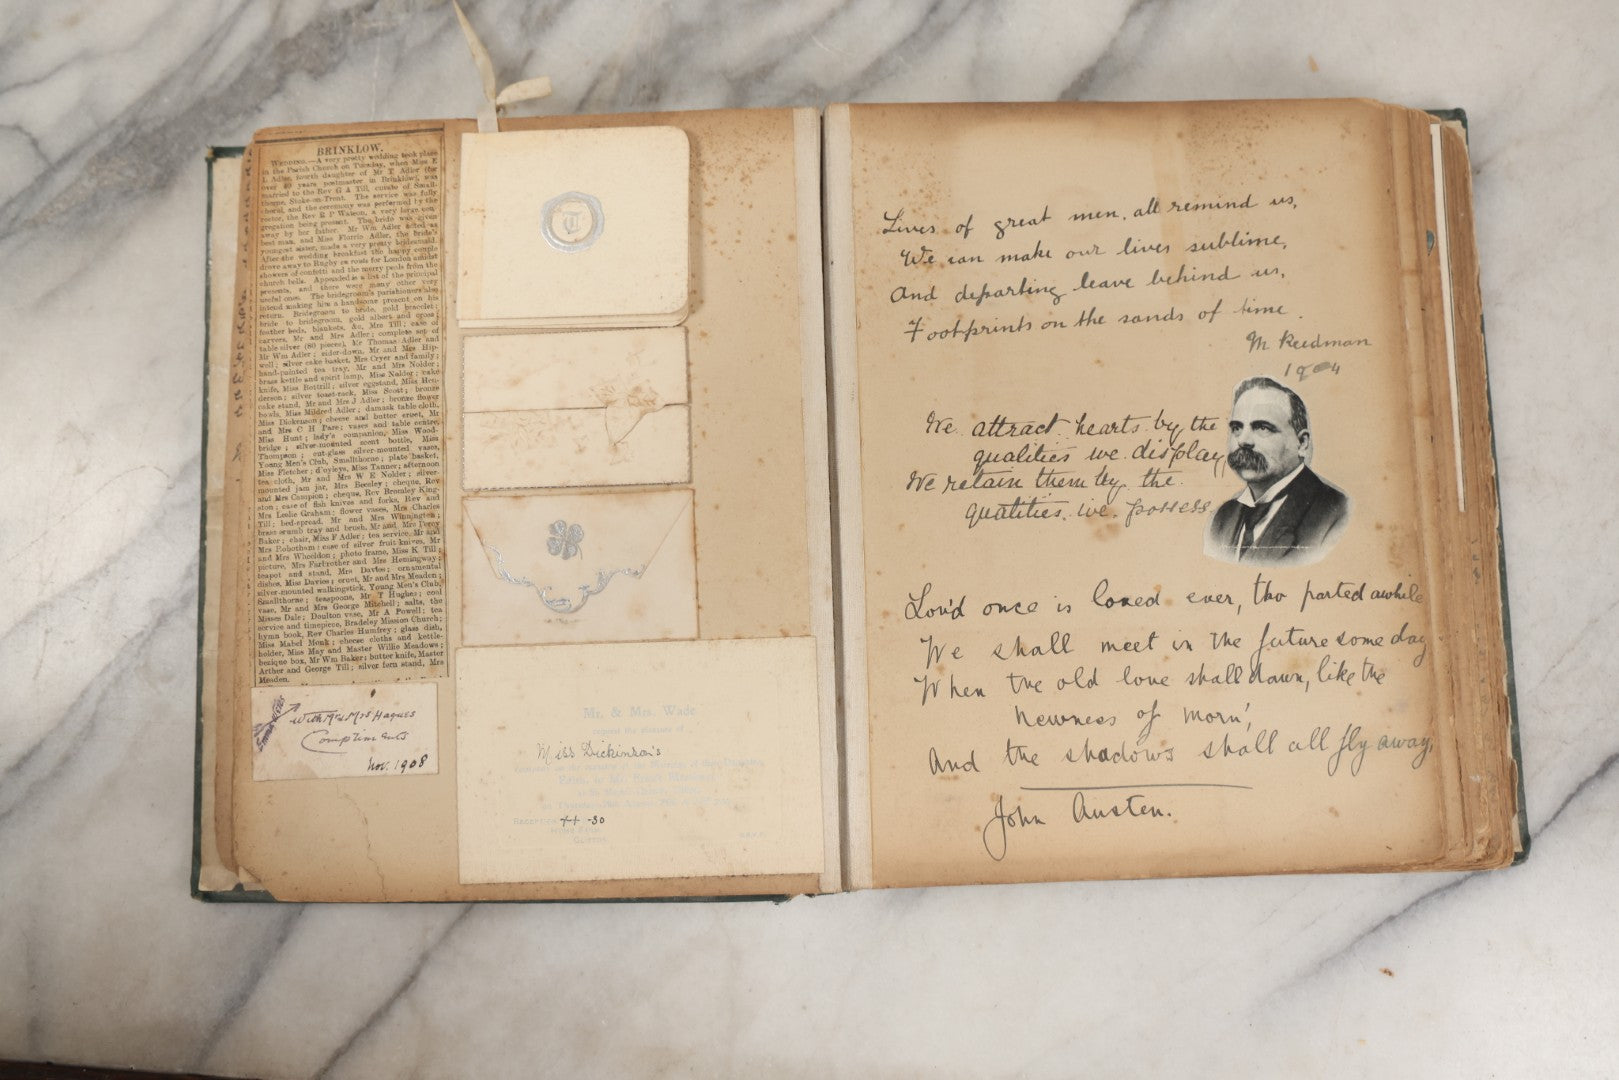 BRINKLOW.
WEDDING.—A very pretty wedding took place
in the Parish Church on Tuesday, when Miss E
L Adler, fourth daughter of Mr T Adler (for
over 40 years postmaster in Brinklow), was
married to the Rev G A Till, curate of Small-
thorne, Stoke-on-Trent. The service was fully
choral, and the ceremony was performed by the
rector, the Rev R P Watson, a very large con-
gregation being present. The bride was given
away by her father. Mr Wm Adler acted as
best man, and Miss Florrie Adler, the bride's
youngest sister, made a very pretty bridesmaid.
After the wedding breakfast the happy couple
drove away to Rugby en route for London amidst
showers of confetti and the merry peals from the
church bells. Appended is a list of the principal
presents, and there were many other very
useful ones. The bridegroom's parishioners also
intend making him a handsome present on his
return. Bridegroom to bride, gold bracelet;
bride to bridegroom, gold albert and cross;
feather beds, blankets, &c, Mrs Till; case of
carvers, Mr and Mrs Adler; complete set of
table silver (80 pieces), Mr Thomas Adler and
Mr Wm Adler; eider-down, Mr and Mrs Hip-
well; silver cake basket, Mrs Cryer and family;
hand-painted tea tray, Mr and Mrs Nolder;
brass kettle and spirit lamp, Miss Nalder; cake
knife, Miss Bottrill; silver eggstand, Miss Hen-
derson; silver toast-rack, Miss Scost; bronze
cake stand, Mr and Mrs J Adler; bronze flower
bowls, Miss Mildred Adler; damask table cloth,
Miss Dickenson; cheese and butter cruet, Mr
and Mrs C H Pare; vases and table centre,
Miss Hunt; lady's companion, Miss Wood-
bridge; silver-mounted scent bottle, Miss
Thompson; cut-glass silver-mounted vases,
Young Men's Club, Smallthorne; plate basket,
Miss Fletcher; d'oyleys, Miss Tanner; afternoon
tea cloth, Mr and Mrs W E Nolder; silver-
mounted jam jar, Mrs Beesley; cheque, Rev
and Mrs Campion; cheque, Rev Bromley King-
ston; case of fish knives and forks, Rev and
Mrs Leslie Graham; flower vases, Mrs Charles
Till; bed-spread, Mr and Mrs Winnington;
brass crumb tray and brush, Mr and Mrs Percy
Baker; chair, Miss F Adler; tea service, Mr and
Mrs Robotham; case of silver fruit knives, Mr
and Mrs Wheeldon; photo frame, Miss K Till;
picture, Mrs Farbrother and Mrs Hemingway;
teapot and stand, Mrs Davies; ornamental
dishes, Miss Davies; cruet, Mr and Mrs Meaden;
silver-mounted walkingstick, Young Men's Club,
Smallthorne; teaspoons, Mr T Hughes; coal
vase, Mr and Mrs George Mitchell; salts, the
Misses Dale; Doulton vase, Mr A Powell; tea
service and timepiece, Bradeley Mission Church;
hymn book, Rev Charles Humfrey; glass dish,
Miss Mabel Monk; cheese cloths and kettle-
holder, Miss May and Master Willie Meadows;
bezique box, Mr Wm Baker; butter knife, Master
Arthur and George Till; silver fern stand, Mrs
Meaden.
With Mr & Mrs Hagues
Compliments
Nov. 1908
T
Mr. & Mrs. Wade
request the pleasure of
Miss Dickinson's
Reception 30
Clifton
R.S.V.P.
Lives of great men, all remind us,
We can make our lives sublime,
And departing leave behind us,
Footprints on the sands of time.
M Reedman
1904
We attract hearts by the
qualities we display,
We retain them by the
qualities we possess
Lov'd once is loved ever, tho parted awhile
We shall meet in the future some day
When the old love shall dawn, like the
newness of morn',
And the shadows shall all fly away,
John Austen.